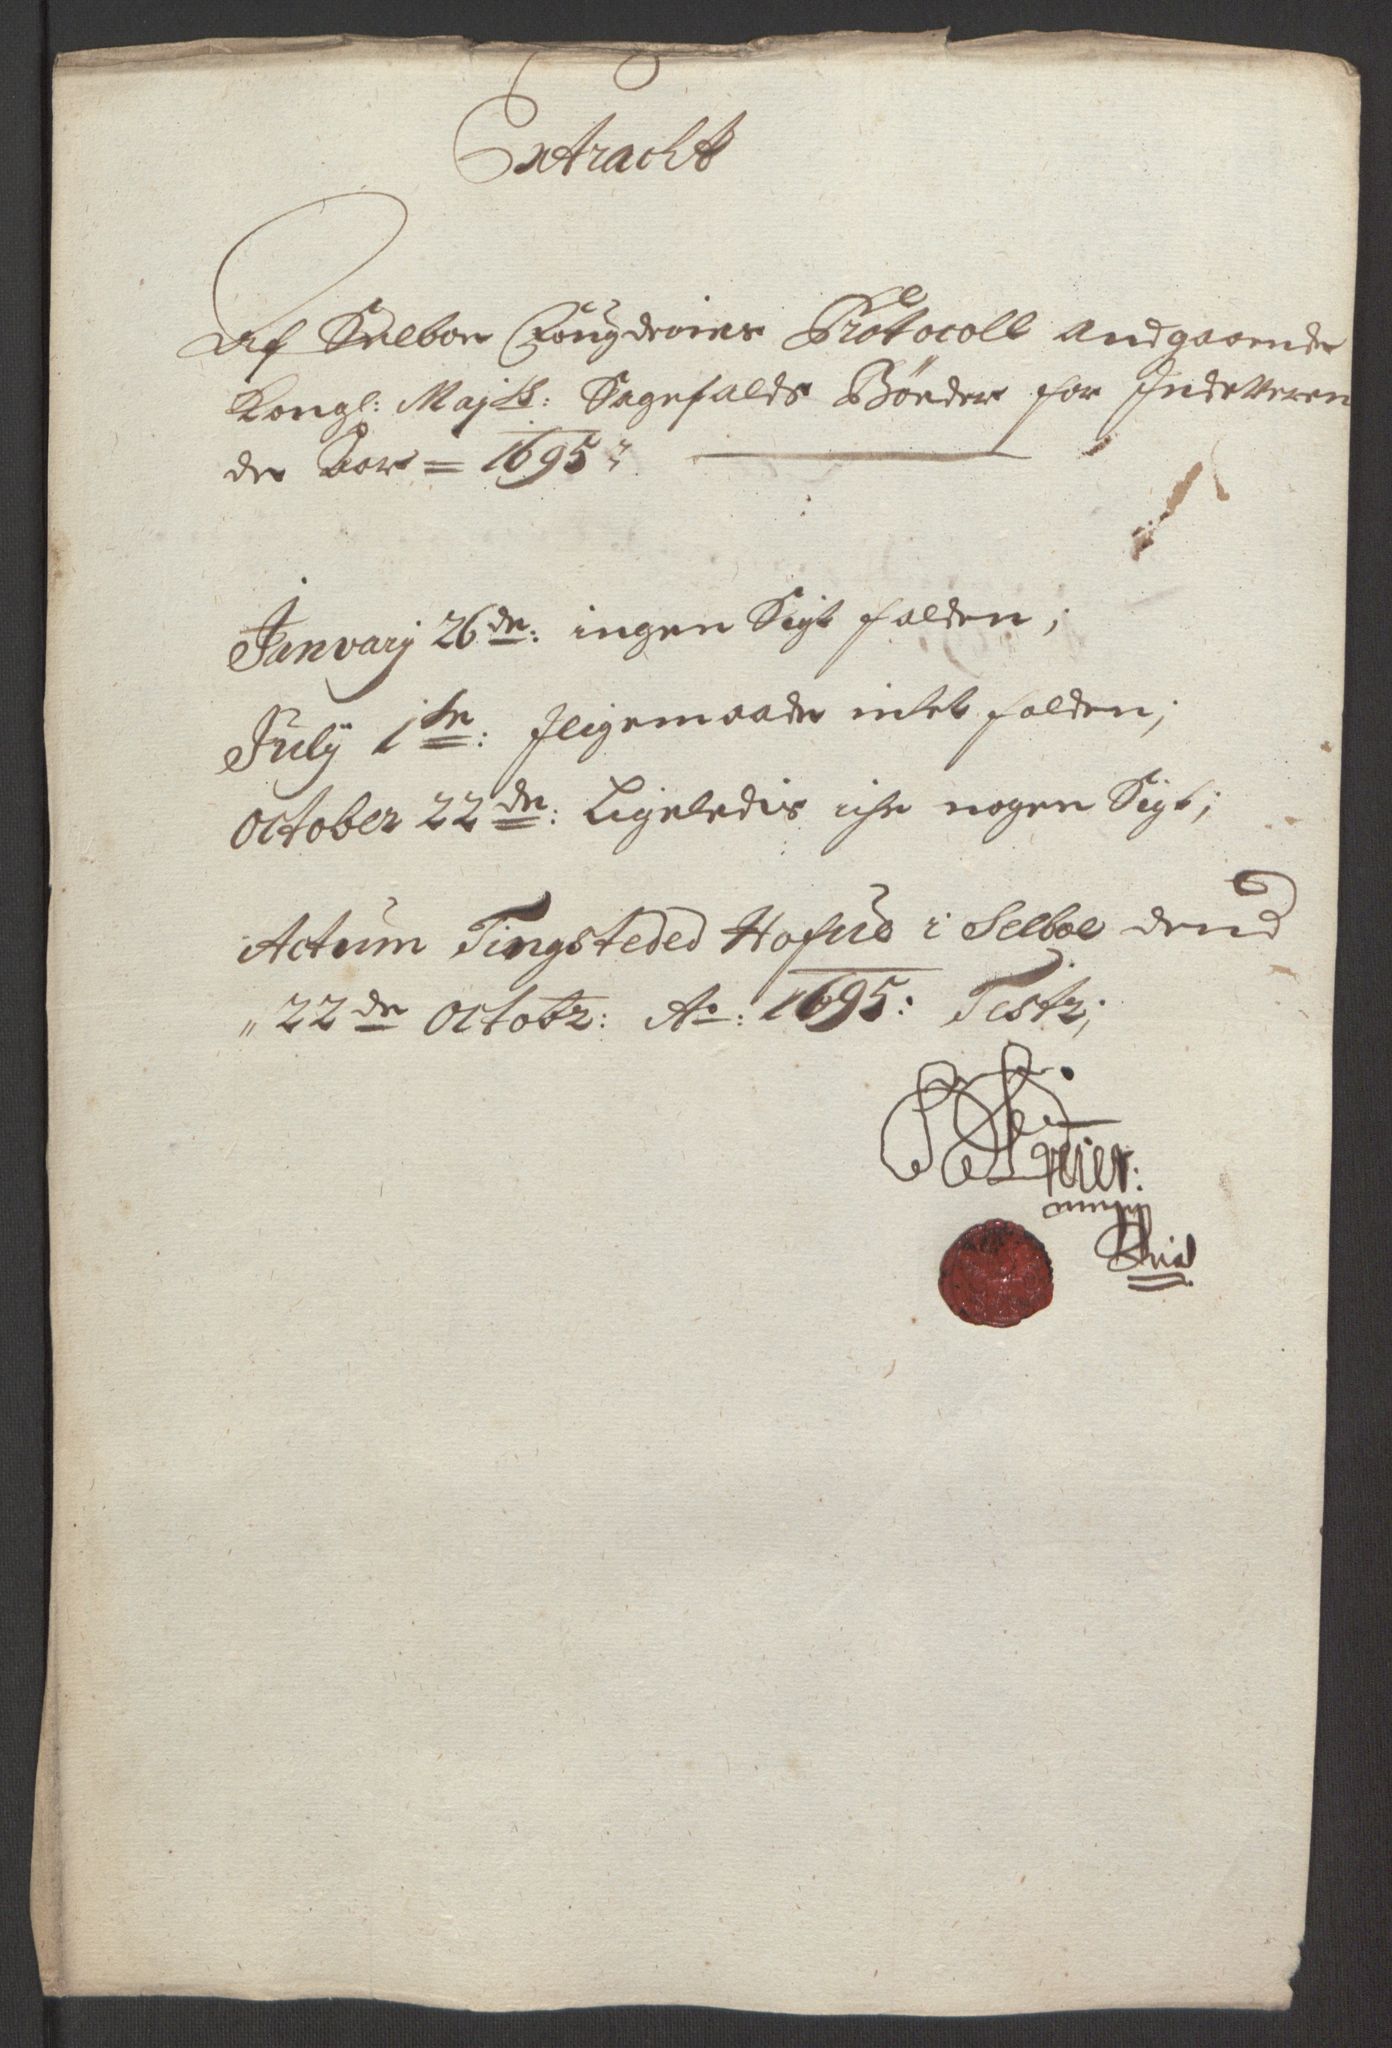 Extracht
Af Selboe Fougderies Protocoll andgaaende
Kongl: Maj tz: Sagefalds Bøeder for Indeveren
de Aar = 1695 ;
Januarij 26 de: ingen Sigt falden;
July 1 ste: Iligemaade intet falden;
October 22 de: Ligeledis iche nogen Sigt;
Actum Tingsteded Hofues i Selboe dend
22 de Octobr: Ao: 1695: Testr;
mppr